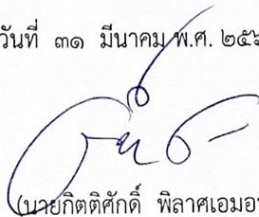 วันที่ ๓๑ มีนาคม พ.ศ. ๒๕๖
(นายกิตติศักดิ์ พิลาศเอมอ